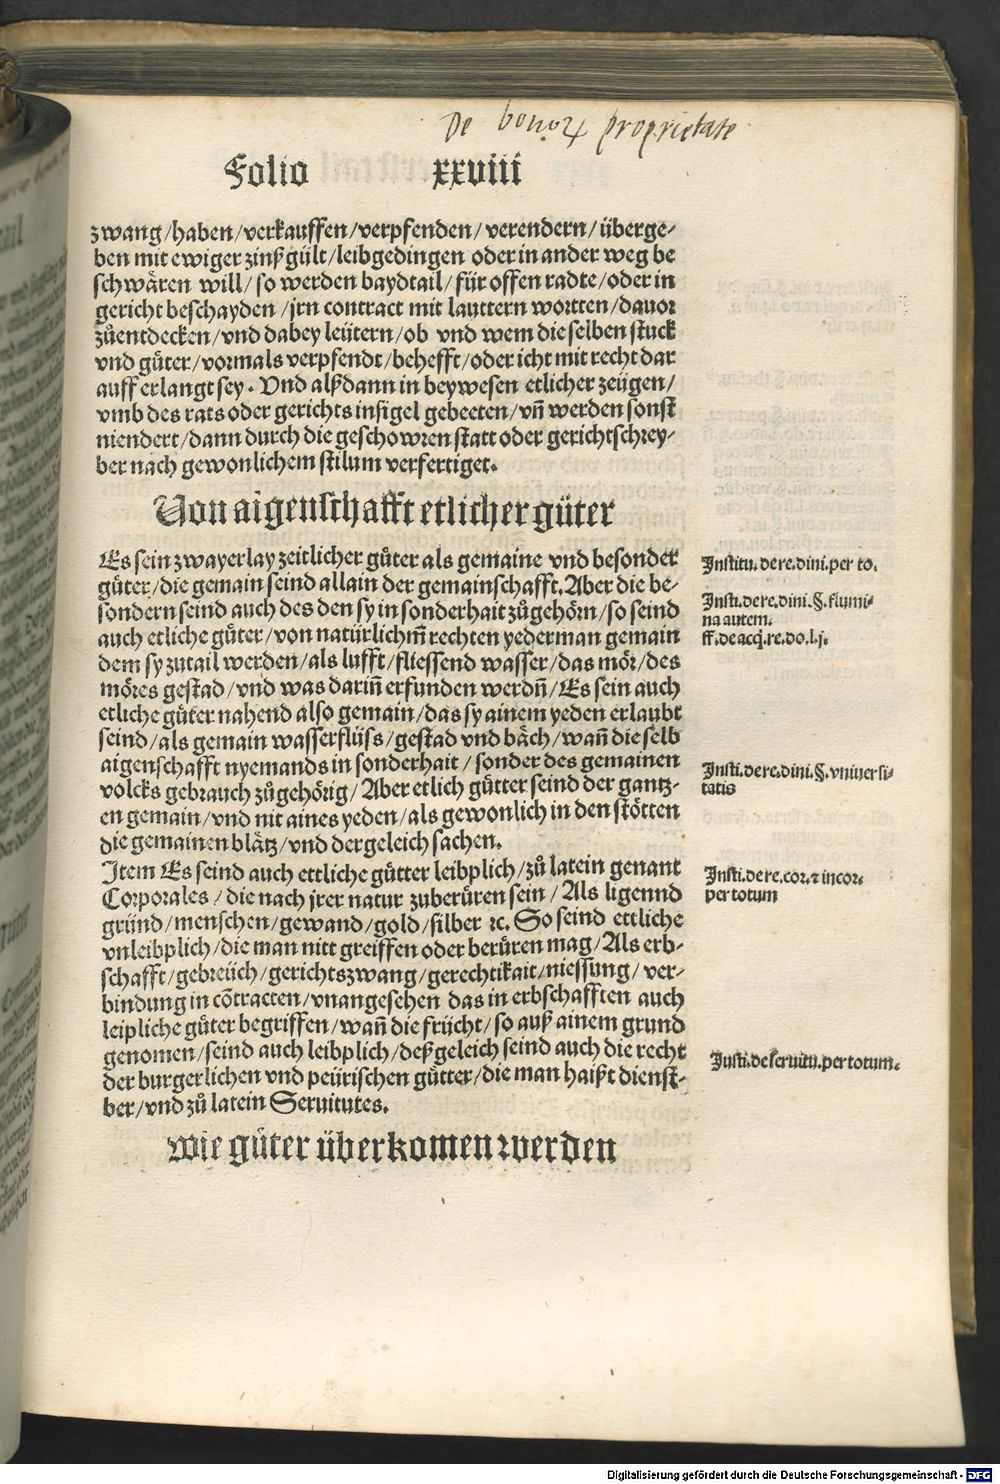 De bonoꝝ proprietate
Folio xxviii
zwang/haben/verkauffen/verpfenden/verendern/überge-
ben mit ewiger zinß gült/leibgedingen oder in ander weg be
schwären will/so werden baydtail/für offen radte/oder in
gericht beschayden/jrn contract mit lauttern wortten/dauor
zůentdecken/vnd dabey leütern/ob vnd wem die selben stuck
vnd güter/vormals verpfendt/behefft/oder icht mit recht dar
auff erlangt sey. Vnd alßdann in beywesen etlicher zeügen/
vmb des rats oder gerichts insigel gebeeten/vñ werden sonst
niendert/dann durch die geschowren statt oder gerichtschrey-
ber nach gewonlichem stilum verfertiget.
Von aigenschafft etlicher güter
Es sein zwayerlay zeitlicher güter als gemaine vnd besonder
güter/die gemain seind allain der gemainschafft. Aber die be-
sondern seind auch des den sy in sonderhait zůgehörn/so seind
auch etliche güter/von natürlichm̃ rechten yederman gemain
dem sy zutail werden/als lufft/fliessend wasser/das mör/des
möres gestad/vnd was dariñ erfunden werdñ/Es sein auch
etliche güter nahend also gemain/das sy ainem yeden erlaubt
seind/als gemain wasserflüss/gestad vnd bäch/wañ die selb
aigenschafft nyemands in sonderhait/sonder des gemainen
volcks gebrauch zůgehörig/Aber etlich gütter seind der gantz-
en gemain/vnd nit aines yeden/als gewonlich in den stötten
die gemainen blätz/vnd dergeleich sachen.
Item Es seind auch ettliche gütter leibplich/zů latein genant
Corporales/die nach jrer natur zuberüren sein/Als ligennd
gründ/menschen/gewand/gold/silber ꝛc. So seind ettliche
vnleibplich/die man nitt greiffen oder berüren mag/Als erb-
schafft/gebreüch/gerichtszwang/gerechtikait/niessung/ver-
bindung in cõtracten/vnangesehen das in erbschafften auch
leipliche güter begriffen/wañ die frücht/so auß ainem grund
genomen/seind auch leibplich/deßgeleich seind auch die recht
der burgerlichen vnd peürischen gütter/die man haißt dienst-
ber/vnd zů latein Seruitutes.
wie güter überkomen werden
Institu. de re. diui. per to.
Insti. de re. diui. §. flumi-
na autem.
ff. de acq̃. re. do. l. j.
Insti. de re. diui. §. vniuersi-
tatis
Insti. de re. cor. ꝛ incor.
per totum
Insti. de seruitu. per totum.
Digitalisierung gefördert durch die Deutsche Forschungsgemeinschaft - DFG